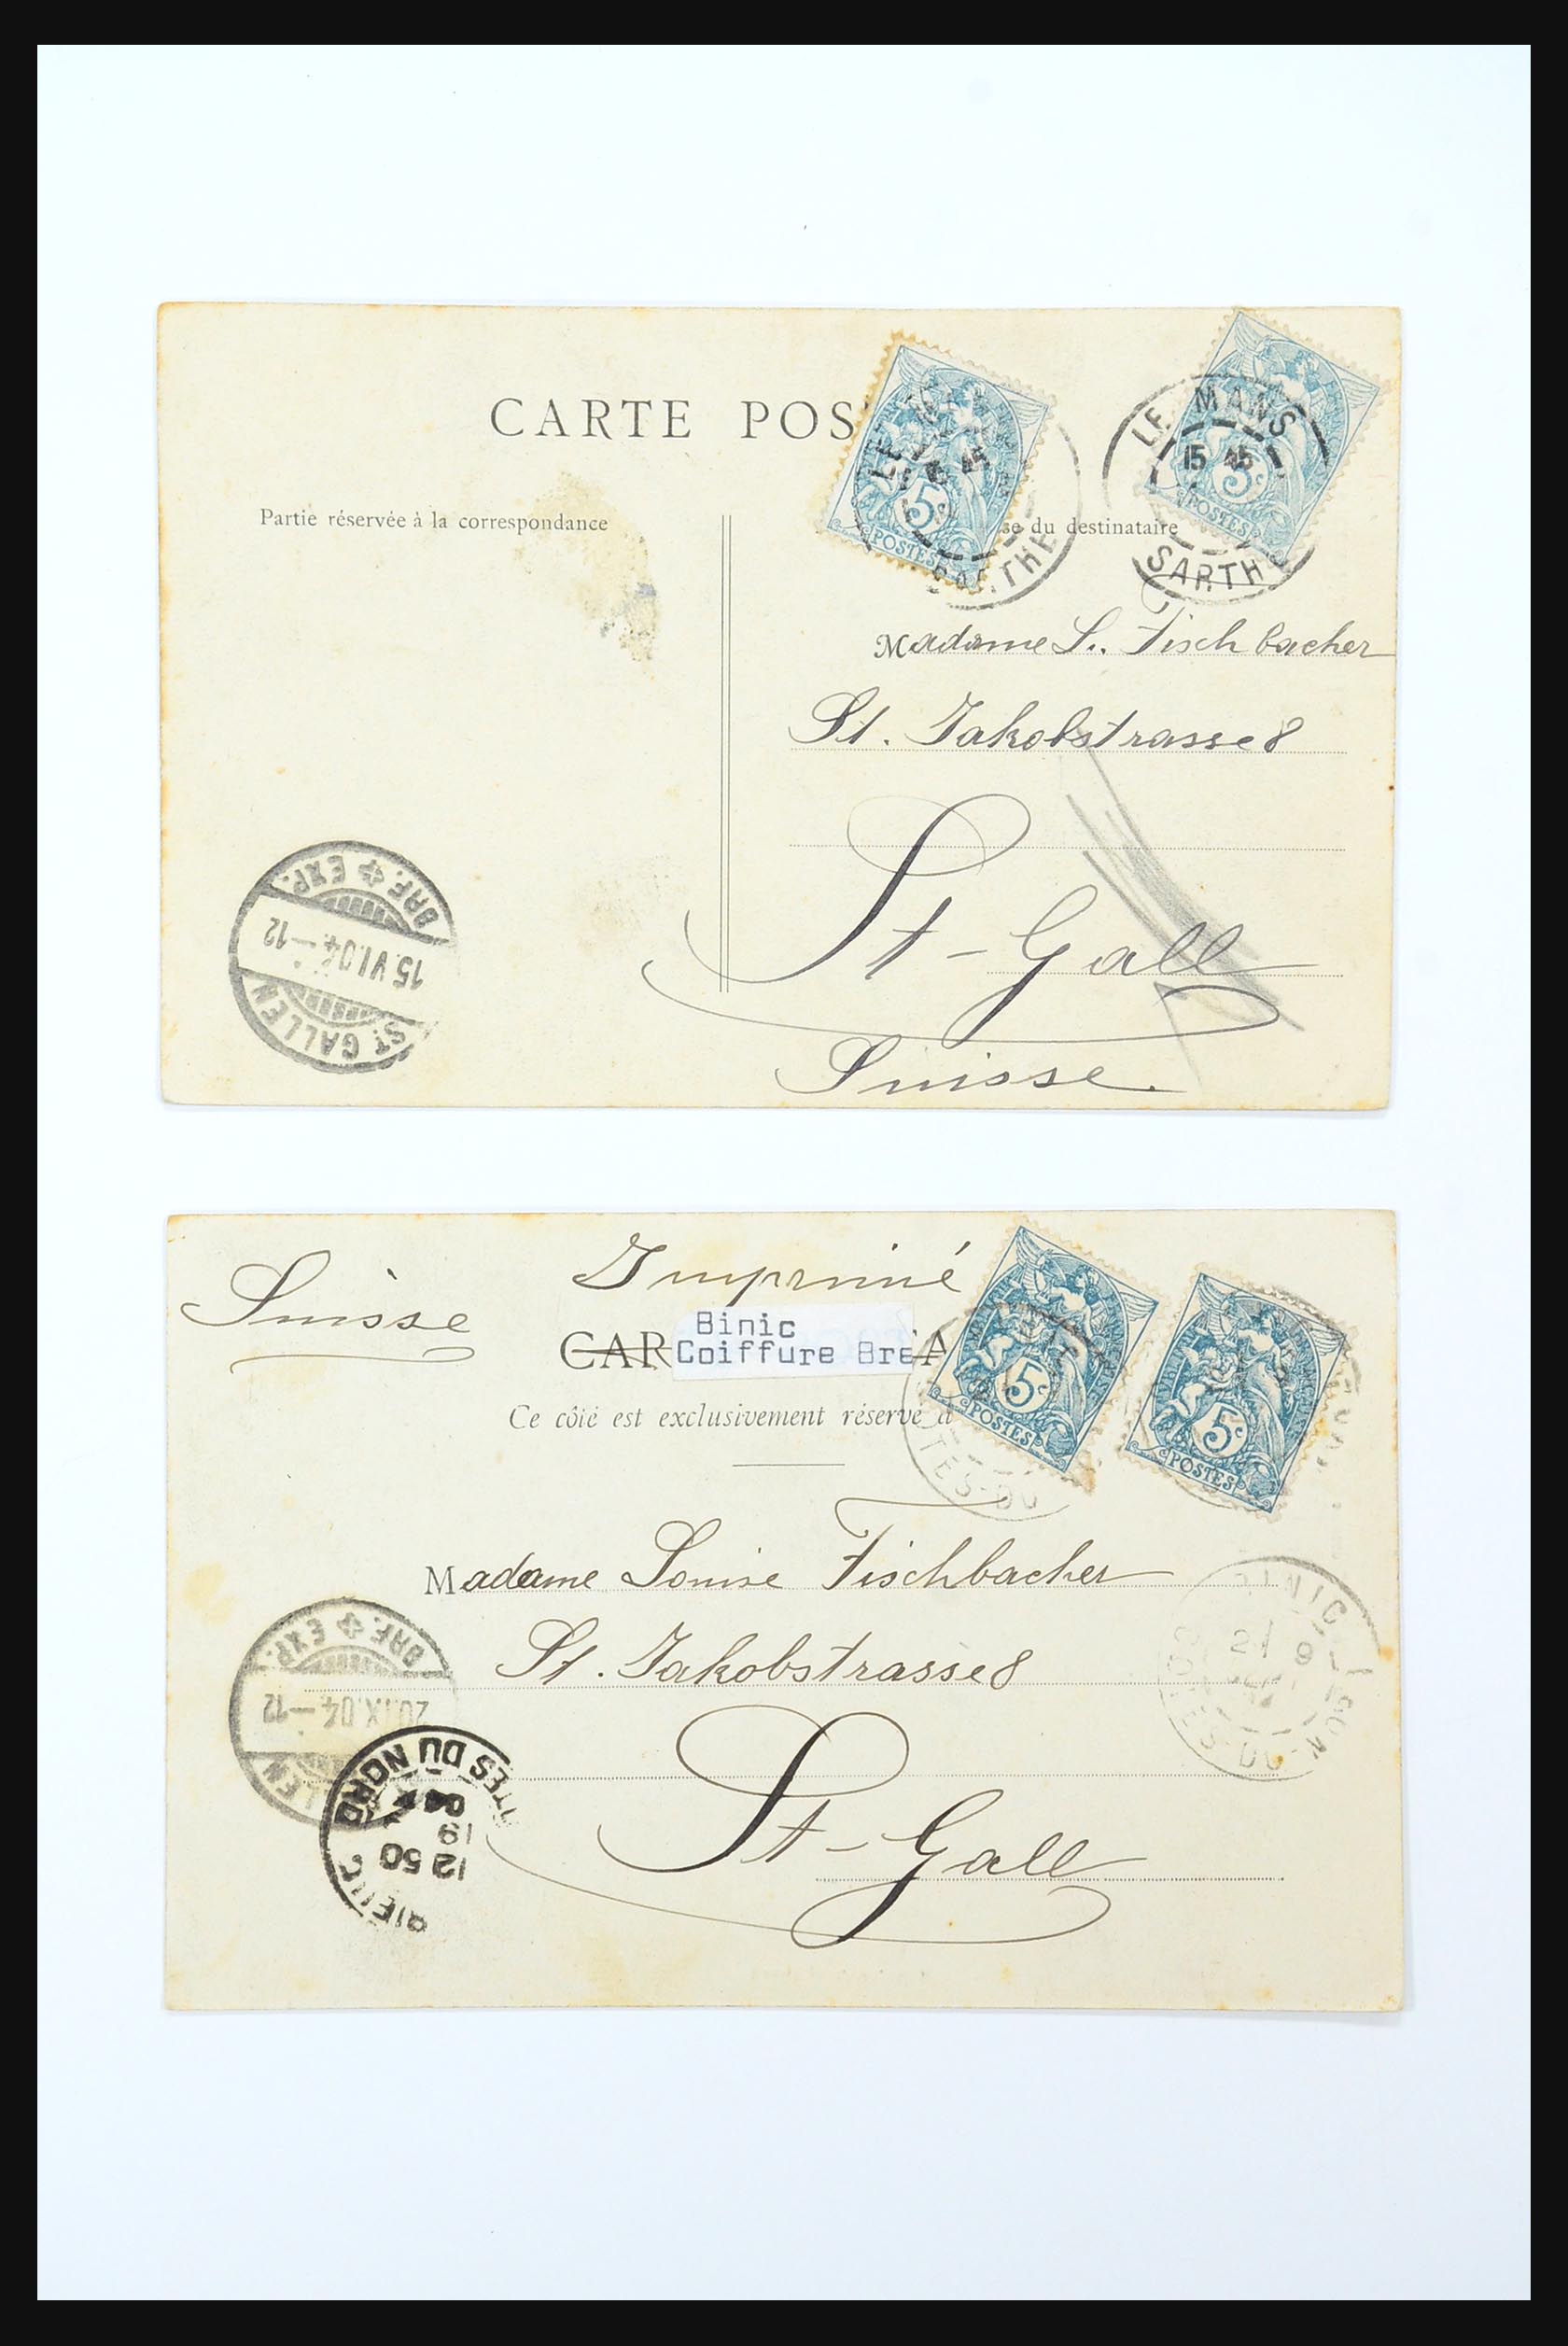 CARTE POS
Partie réservée à la correspondance
se du destinataire
5c
POSTES
LE MANS
15 45
SARTHE
5c
POSTES
LE MANS
15 45
SARTH
Madame L. Fischbacher
St. Jakobstrasse 8
St-Gall
Suisse.
BRF. EXP.
15.VI.04.-12
ST. GALLEN
Suisse
Imprimé
Binic
CAR Coiffure Bre A
Ce côté est exclusivement réservé à
5c
POSTES
TES-DU
5c
POSTES
Madame Louise Fischbacher
St. Jakobstrasse 8
St-Gall
BINIC
21
9
COTES-DU-NORD
BRF. EXP.
20.IX.04-12
LLEN
TES DU NORD
04
19
12 50
RIEUC